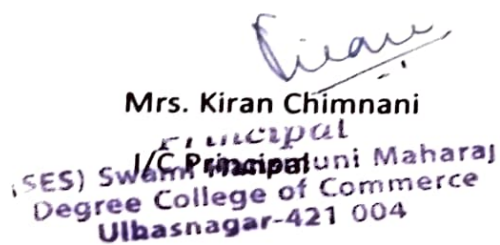 Kiran
Mrs. Kiran Chimnani
Principal
I/C Principal
(SES) Swami Maharaj
Degree College of Commerce
Ulhasnagar-421 004